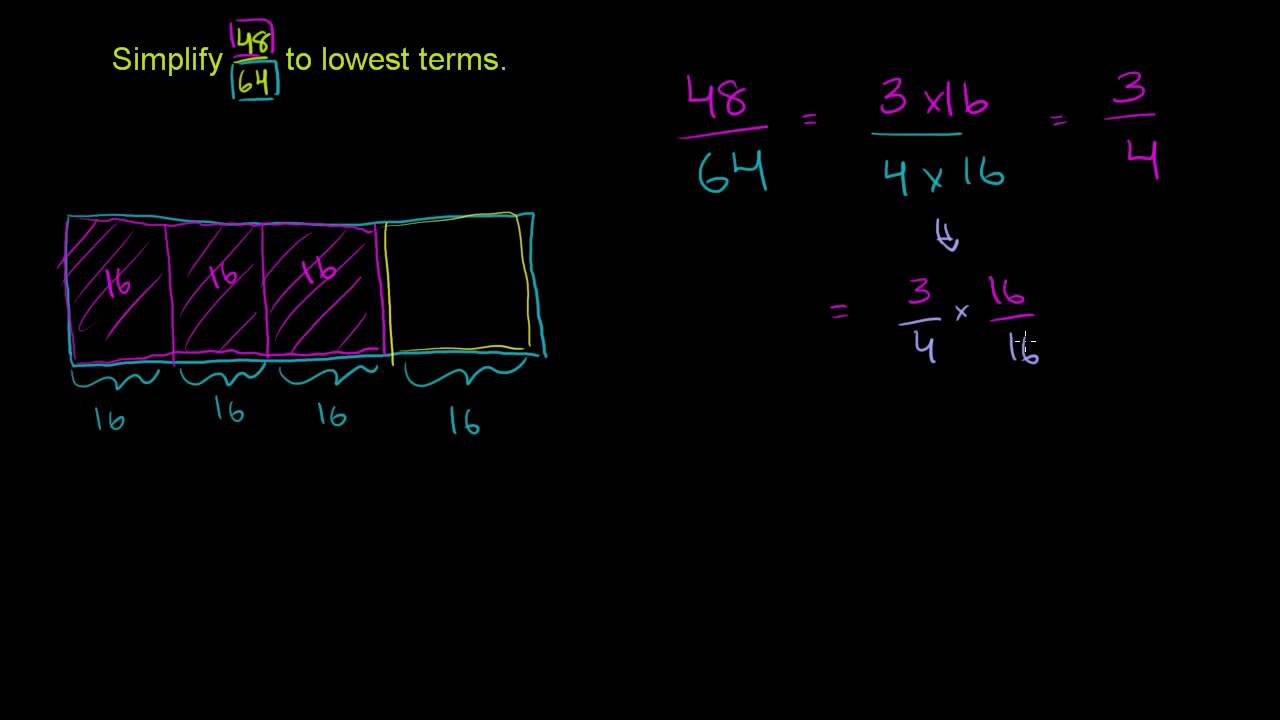 Simplify 48/64 to lowest terms.
48/64 = 3 x 16 / 4 x 16 = 3/4
= 3/4 x 16/16
16 16 16
16 16 16 16